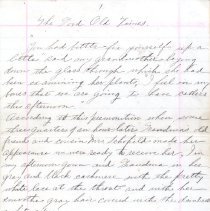 1
The Good Old Times.
"You had better fix yourself up a
little said my grandmother laying
down the glass through which she had
been examining her plants, I feel in my
bones that we are going to have callers
this afternoon.
According at this premonition when some
three quarters of an hour later Grandma's old
friend and cousin Mrs. Schofield made her
appearance we were ready to receive her, I in
my afternoon gown and Grandma in her
gray and black cashmere with the pretty
white lace at the throat and with her
smooth gray hair covered with the